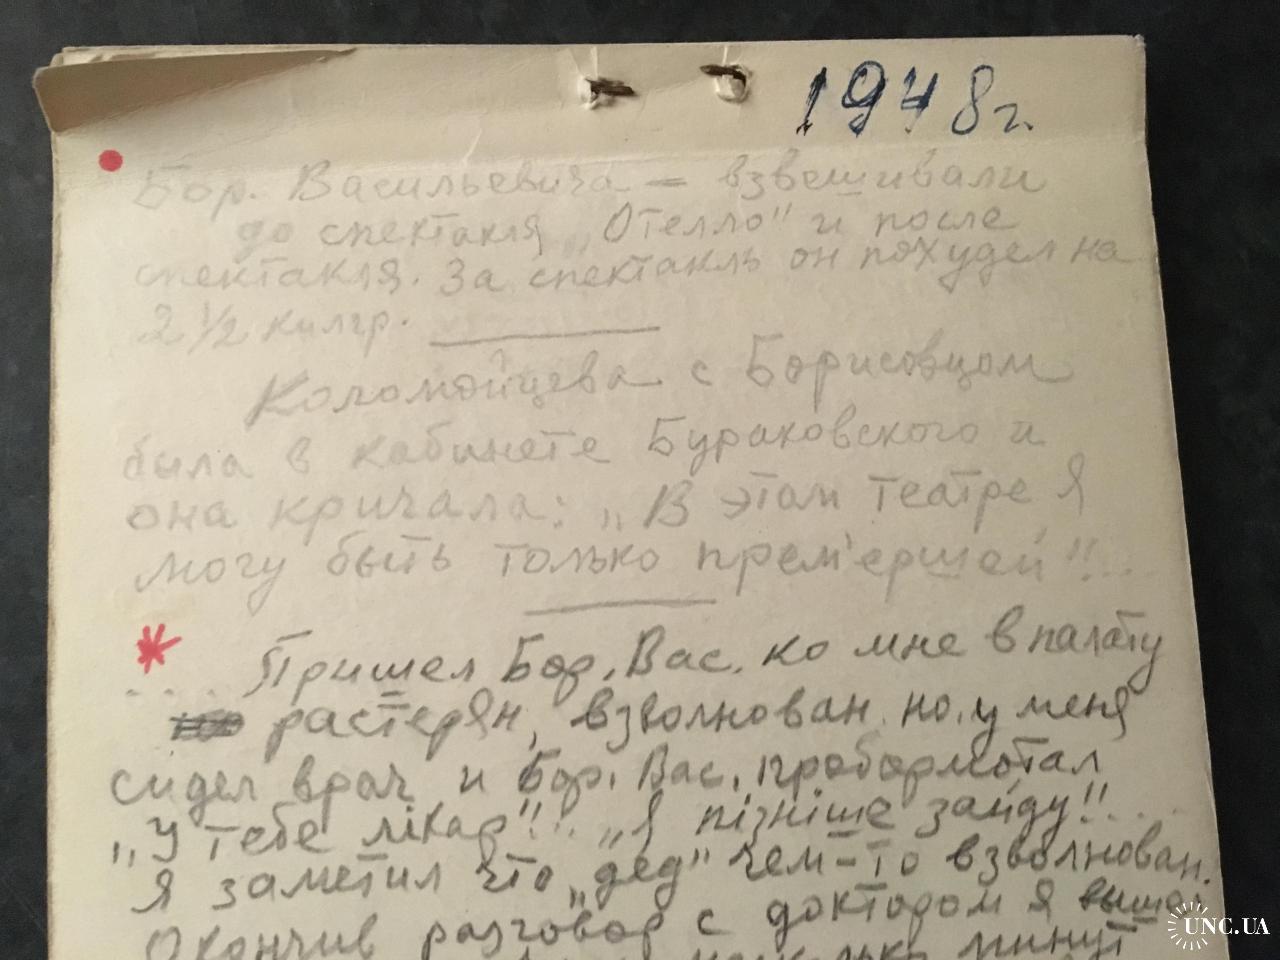 1948г.
Бор. Васильевича — взвешивали
до спектакля „Отелло" и после
спектакля. За спектакль он похудел на
2 1/2 килгр.
Коломойцева с Борисовцом
была в кабинете Бураковского и
она кричала: „В этом театре я
могу быть только прем'ершей"!...
.... Пришел Бор. Вас. ко мне в палату
растерян, взволнован. но у меня
сидел врач и Бор. Вас. пробормотал
„У тебе лікар"!.. „Я пізніше зайду"!...
Я заметил что „дед" чем-то взволнован.
Окончив разговор с доктором я вышел
минут
UNC.UA